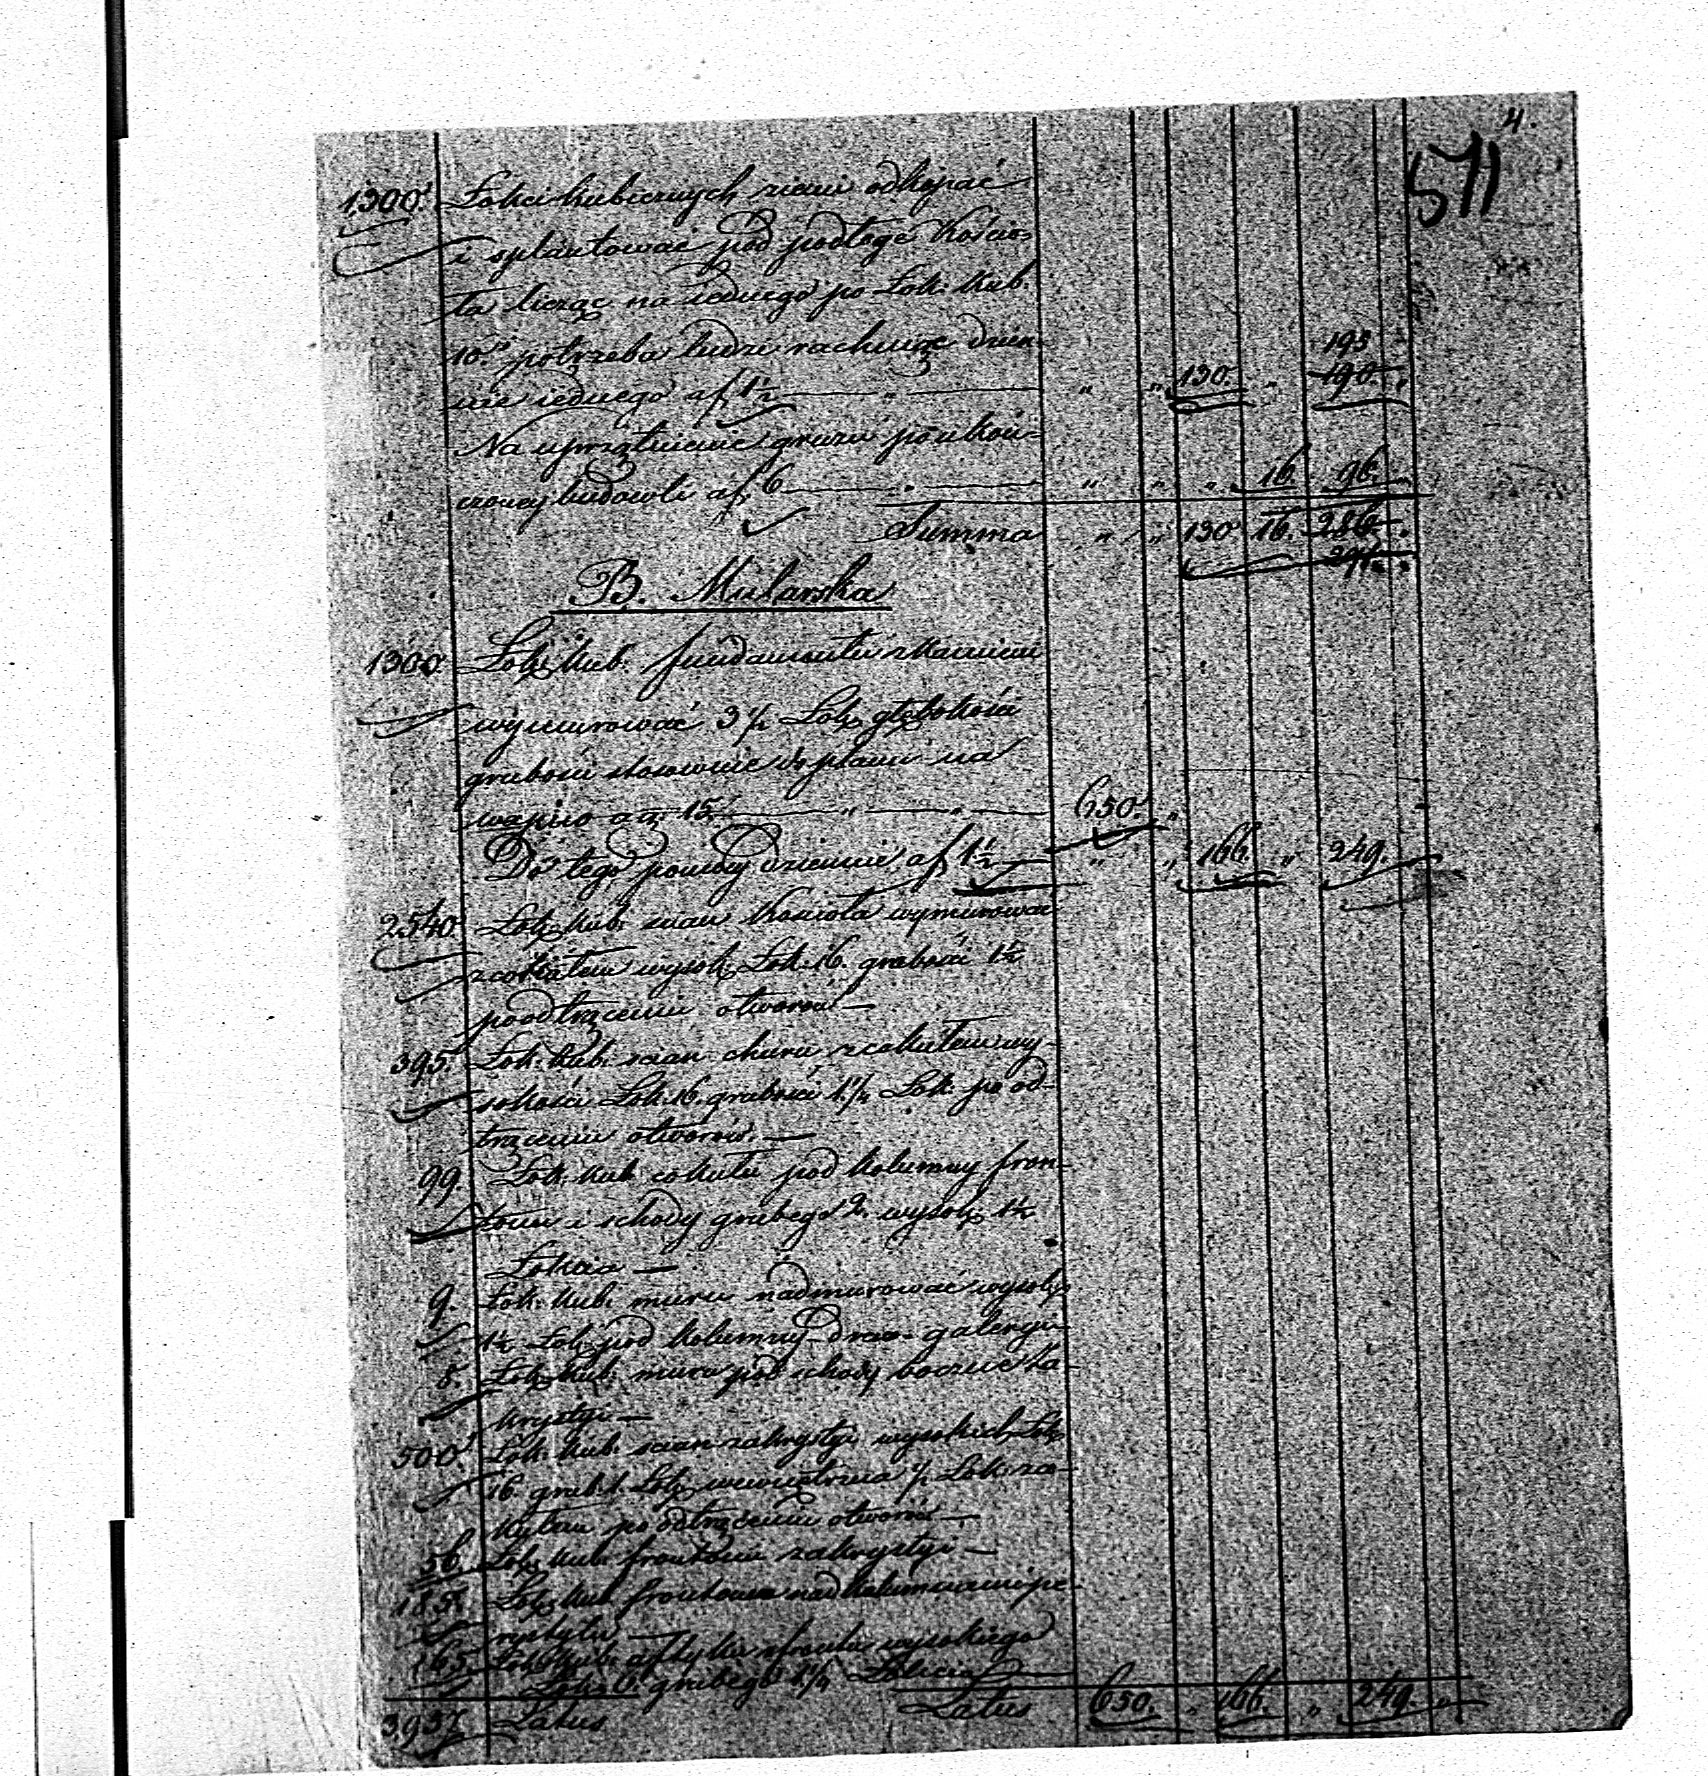 4.
571
1300. Łokci kubicznych ziemi odkopać
i splantować pod podłogę Kościo-
ła licząc na jednego po Łok: kub.
10. potrzeba ludzi rachując dzien- 195
nie iednego af 1½ — „ — „ „ 130. „ 190. „
Na uprzątnienie gruzu po ukoń-
czoney budowli af 6 — „ — „ „ „ 16. 96. „
Summa „ „ 130 16. 286. „
291. „
B. Mularska
1300 Łok: kub. fundamentu z kamieni
wymurować 3½ Łok: głębokości
grubości stosownie do planu na
wapno a gr. 15. — „ — „ — 650. „
Do tego pomocy dziennie af 1½ — „ „ 166. „ 249.
2540 Łok: kub: scian Kościoła wymurować
z cokułem wysok: Łok: 16. grubości 1½
po odtrąceniu otworów —
395. Łok: kub: scian churu z cokułem wy-
sokości Łok: 16. grubości 1¼ Łok: po od-
trąceniu otworów. —
99. Łok: kub. cokułu pod kolumny fron-
towe i schody grubego 2. wysok: 1½
Łokcia —
9. Łok: kub: muru nadmurować wysok:
1½ Łok: pod kolumny galeryi
8. Łok: kub: muru pod schody boczne Za-
krystyi —
500 Łok: kub: scian zakrystyi wysokich Łok:
16. grub: 1. Łok: wewnętrzna ½ Łok: z co-
kułem po odtrąceniu otworów —
56. Łok: kub: frontonu zakrystyi —
185. Łok: kub frontonu nad kolumnami pe-
rystylu —
165. Łok: kub: attyku z frontu wysokiego
Łok: 6. grubego 1¼ Łokcia —
3957 Latus Latus 650. „ 166. „ 249. „